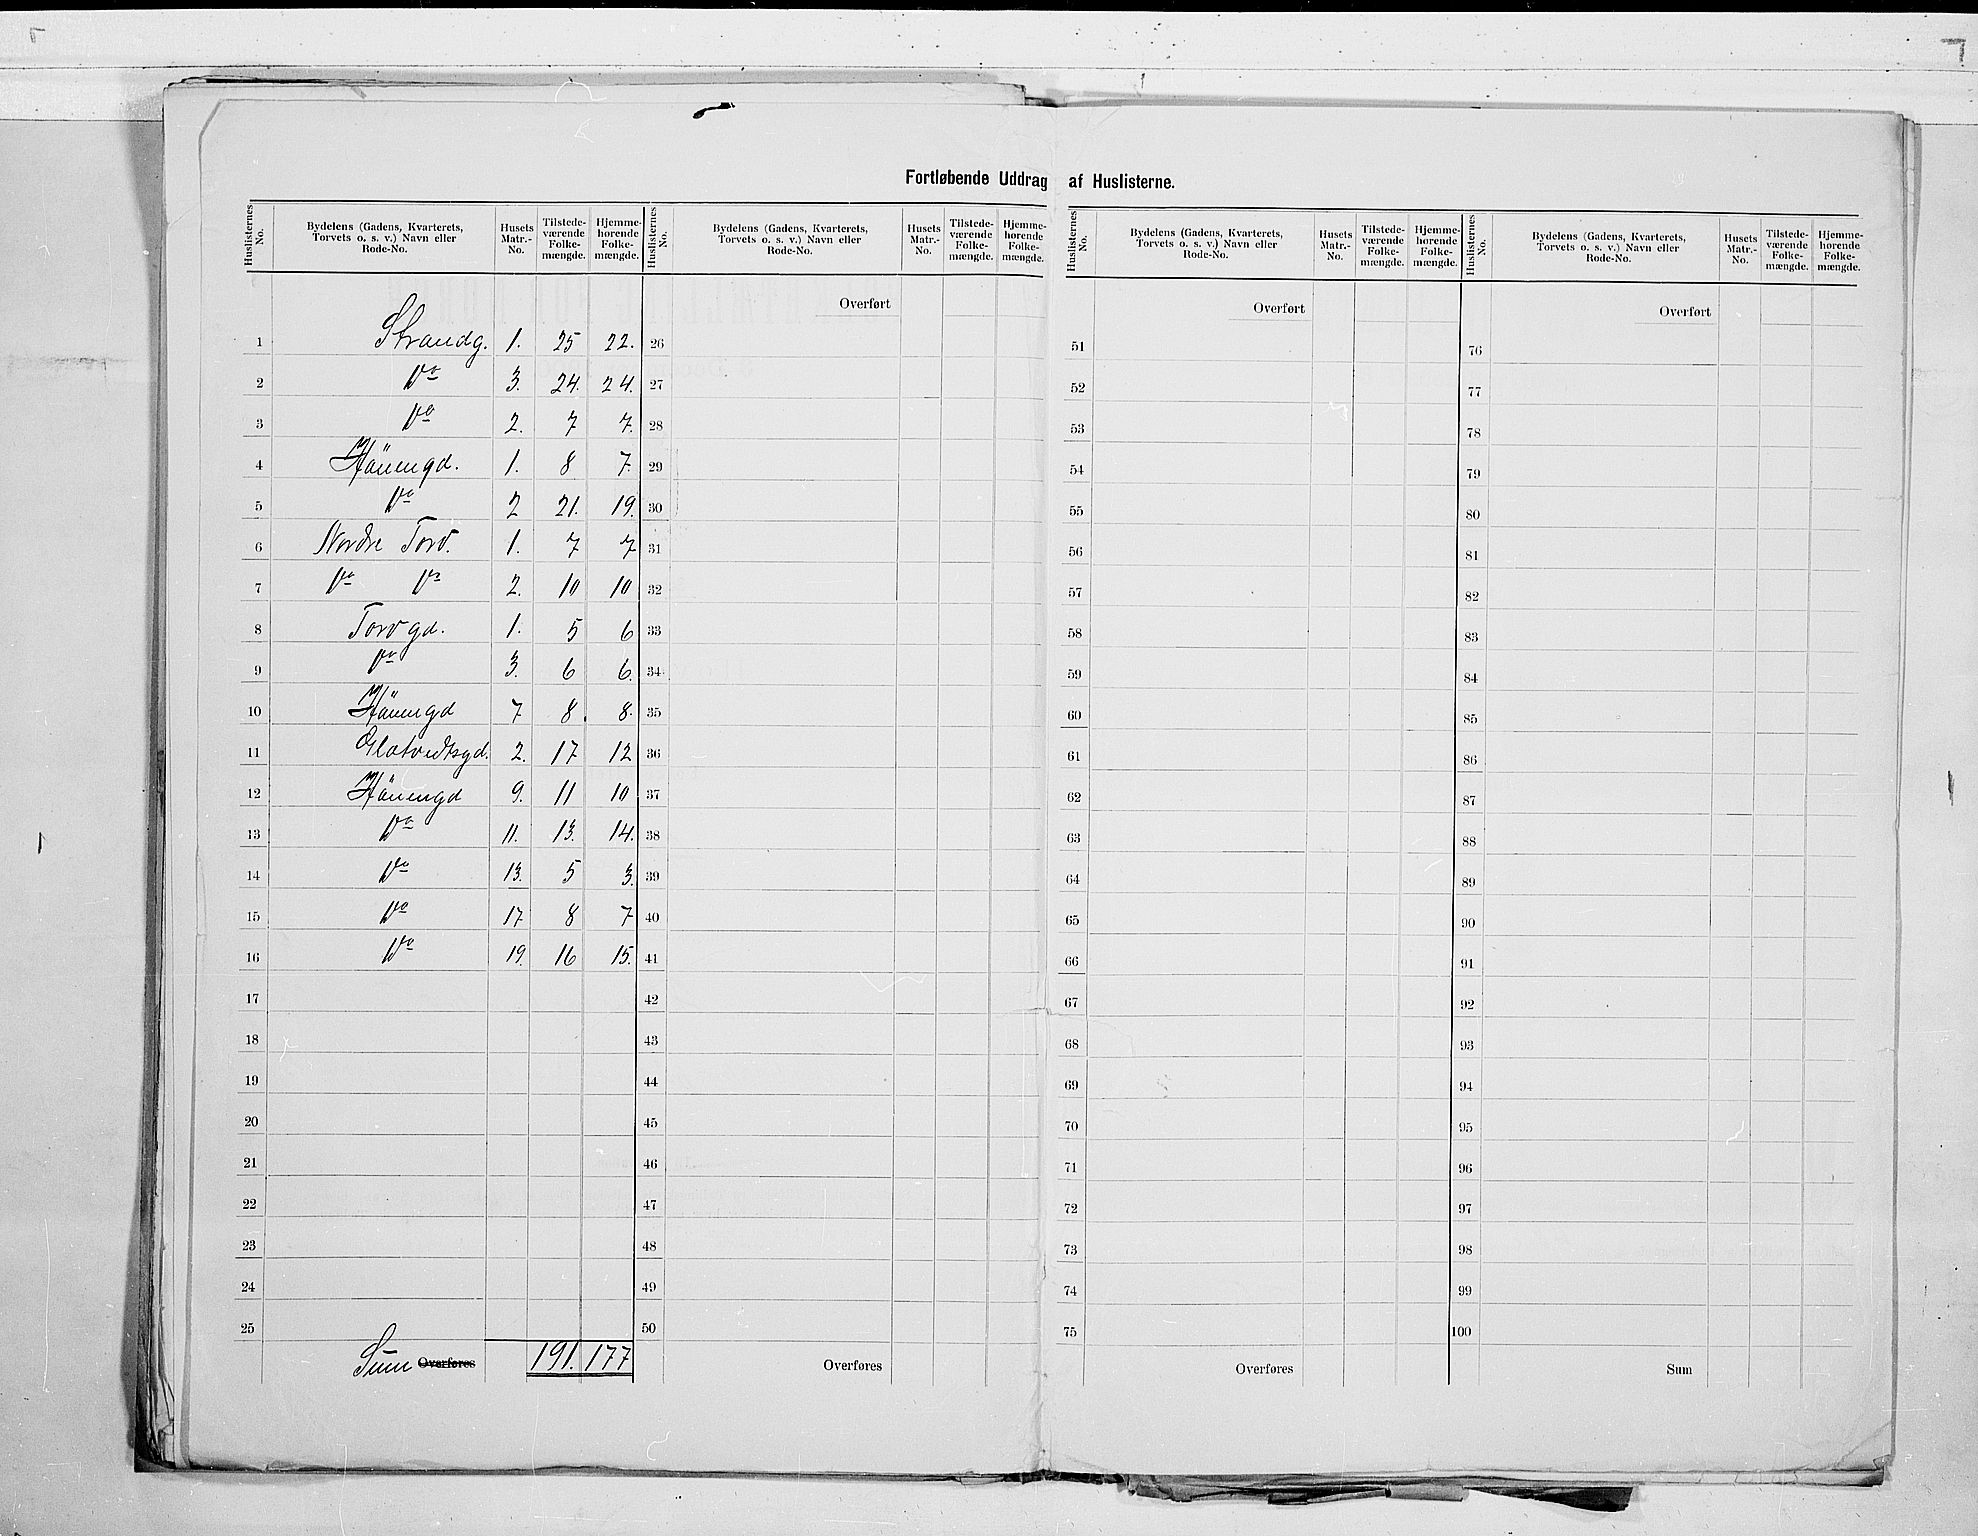 Fortløbende Uddrag af Huslisterne.
Huslisternes No. | Bydelens (Gadens, Kvarterets, Torvets o. s. v.) Navn eller Rode-No. | Husets Matr.-No. | Tilstedeværende Folkemængde. | Hjemmehørende Folkemængde.
1 Strandg. 1. 25 22.
2 Do 3. 24. 24.
3 Do 2. 7 7.
4 1. 8 7.
5 Do 2 21. 19.
6 Nordre Torv. 1. 7 7
7 Do Do 2. 10 10
8 Torvgd. 1. 5 6
9 Do 3. 6 6.
10 7 8. 8.
11 Glatvedtsgd. 2. 17 12
12 9. 11 10
13 Do 11. 13. 14.
14 Do 13. 5 3.
15 Do 17 8 7
16 Do 19. 16 15.
17
18
19
20
21
22
23
24
25
Sum Overføres 191. 177
Huslisternes No. | Bydelens (Gadens, Kvarterets, Torvets o. s. v.) Navn eller Rode-No. | Husets Matr.-No. | Tilstedeværende Folkemængde. | Hjemmehørende Folkemængde.
Overført
26
27
28
29
30
31
32
33
34
35
36
37
38
39
40
41
42
43
44
45
46
47
48
49
50
Overføres
Huslisternes No. | Bydelens (Gadens, Kvarterets, Torvets o. s. v.) Navn eller Rode-No. | Husets Matr.-No. | Tilstedeværende Folkemængde. | Hjemmehørende Folkemængde.
Overført
51
52
53
54
55
56
57
58
59
60
61
62
63
64
65
66
67
68
69
70
71
72
73
74
75
Overføres
Huslisternes No. | Bydelens (Gadens, Kvarterets, Torvets o. s. v.) Navn eller Rode-No. | Husets Matr.-No. | Tilstedeværende Folkemængde. | Hjemmehørende Folkemængde.
Overført
76
77
78
79
80
81
82
83
84
85
86
87
88
89
90
91
92
93
94
95
96
97
98
99
100
Sum